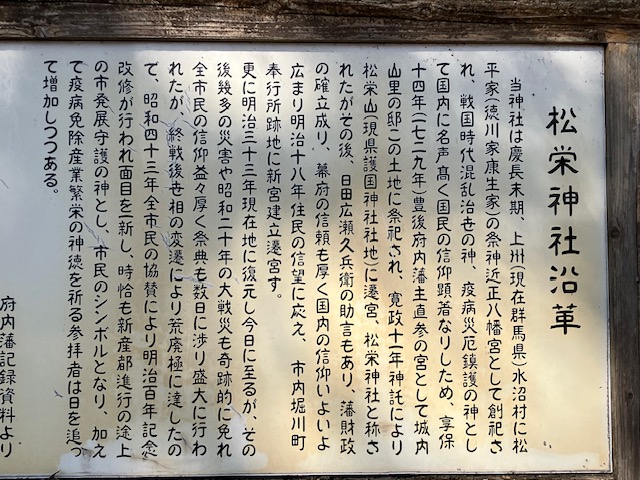 松栄神社沿革
当神社は慶長末期、上州(現在群馬県)水沼村に松
平家(徳川家康生家)の祭神近正八幡宮として創祀さ
れ、戦国時代混乱治世の神、疫病災厄鎮護の神とし
て国内に名声高く国民の信仰顕著なりしため、享保
十四年(一七二九年)豊後府内藩主直参の宮として城内
山里の邸この土地に祭祀され、寛政十一年神託により
松栄山(現県護国神社社地)に遷宮、松栄神社と称さ
れたがその後、日田広瀬久兵衛の助言もあり、藩財政
の確立成り、幕府の信頼も厚く国内の信仰いよいよ
広まり明治十八年住民の信望に応え、市内堀川町
奉行所跡地に新宮建立遷宮す。
更に明治三十三年現在地に復元し今日に至るが、その
後幾多の災害や昭和二十年の大戦災も奇跡的に免れ
全市民の信仰益々厚く祭典も数日に渉り盛大に行わ
れたが、終戦後世相の変遷により荒廃極に達したの
で、昭和四十三年全市民の協賛により明治百年記念
改修が行われ面目を一新し、時恰も新産都進行の途上
の市発展守護の神とし、市民のシンボルとなり、加え
て疫病免除産業繁栄の神徳を祈る参拝者は日を追っ
て増加しつつある。
府内藩記録資料より